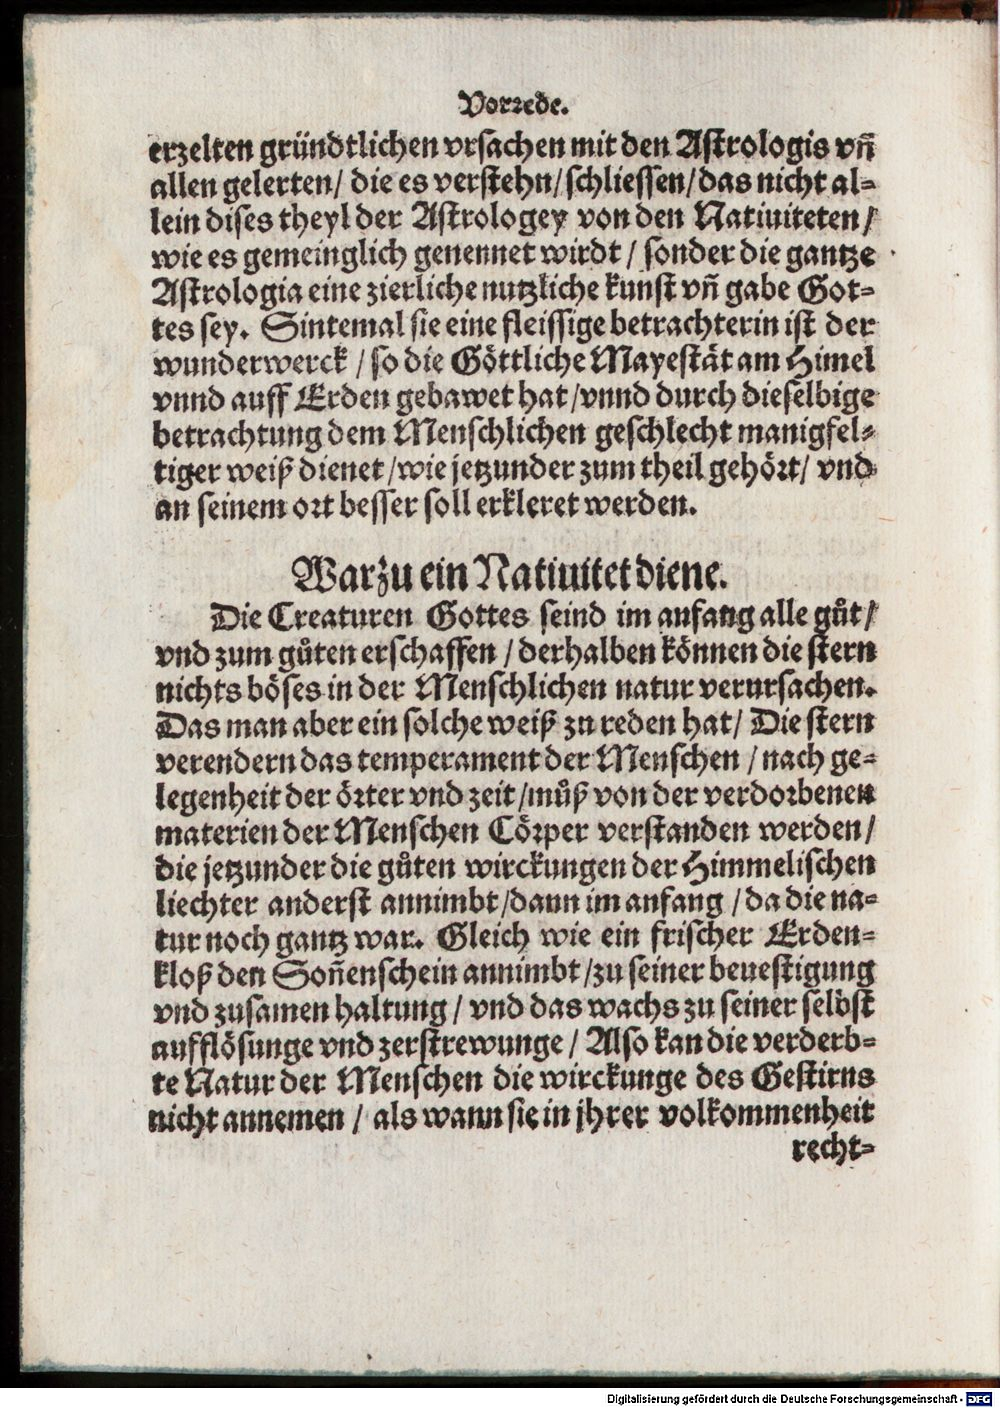 Vorrede.
erzelten gründtlichen vrsachen mit den Astrologis vñ
allen gelerten/ die es verstehn/schliessen/das nicht al-
lein dises theyl der Astrologey von den Natiuiteten/
wie es gemeinglich genennet wirdt / sonder die gantze
Astrologia eine zierliche nutzliche kunst vñ gabe Got-
tes sey. Sintemal sie eine fleissige betrachterin ist der
wunderwerck / so die Göttliche Mayestät am Himel
vnnd auff Erden gebawet hat /vnnd durch dieselbige
betrachtung dem Menschlichen geschlecht manigfel-
tiger weiß dienet /wie jetzunder zum theil gehört/ vnd
an seinem ort besser soll erkleret werden.
Warzu ein Natiuitet diene.
Die Creaturen Gottes seind im anfang alle gůt/
vnd zum gůten erschaffen / derhalben können die stern
nichts böses in der Menschlichen natur verursachen.
Das man aber ein solche weiß zu reden hat/ Die stern
verendern das temperament der Menschen / nach ge-
legenheit der örter vnd zeit /můß von der verdorbenen
materien der Menschen Cörper verstanden werden/
die jetzunder die gůten wirckungen der Himmelischen
liechter anderst annimbt /dann im anfang / da die na-
tur noch gantz war. Gleich wie ein frischer Erden-
kloß den Soñenschein annimbt /zu seiner beuestigung
vnd zusamen haltung / vnd das wachs zu seiner selbst
aufflösunge vnd zerstrewunge / Also kan die verderb-
te Natur der Menschen die wirckunge des Gestirns
nicht annemen / als wann sie in jhrer volkommenheit
recht-
Digitalisierung gefördert durch die Deutsche Forschungsgemeinschaft - DFG